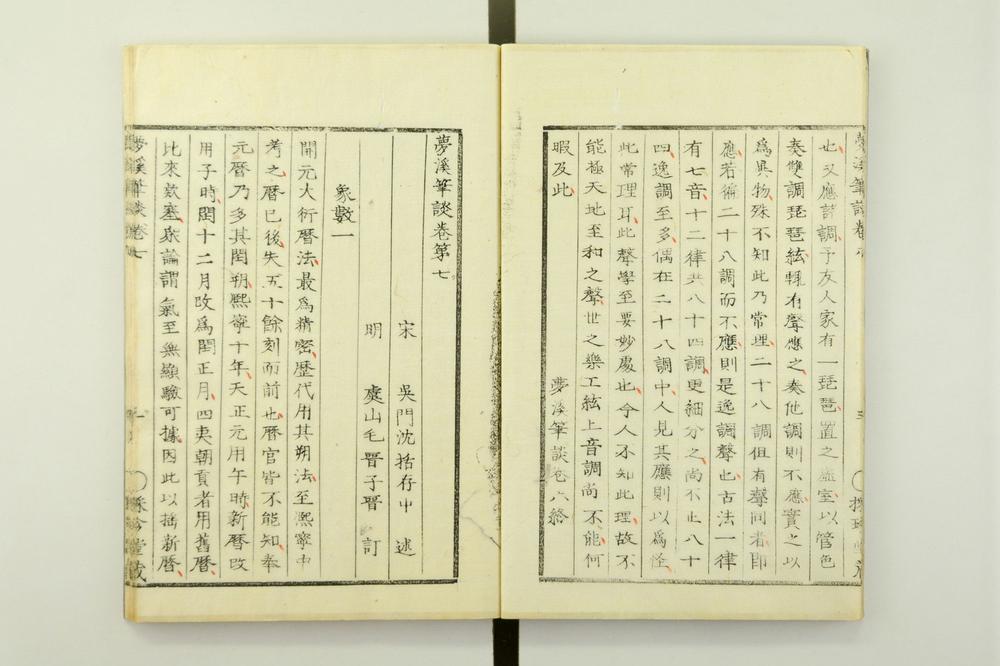 也又應諸調予友人家有一琵琶置之虛室以管色
奏雙調琵琶絃輒有聲應之奏他調則不應寶之以
爲異物殊不知此乃常理二十八調但有聲同者即
應若徧二十八調而不應則是逸調聲也古法一律
有七音十二律共八十四調更細分之尚不止八十
四逸調至多偶在二十八調中人見其應則以爲怪
此常理耳此聲學至要妙處也今人不知此理故不
能極天地至和之聲世之樂工絃上音調尚不能何
暇及此
夢溪筆談卷六終
夢溪筆談卷第七
宋 吳門沈括存中 述
明 虞山毛晉子晉 訂
象數一
開元大衍曆法最爲精密歷代用其朔法至熙寧中
考之曆已後失五十餘刻而前世曆官皆不能知奉
元曆乃多其閏朔熙寧十年天正元用午時新曆改
用子時閏十二月改爲閏正月四夷朝貢者用舊曆
比來款塞眾論謂氣至無顯驗可據因此以搖新曆
夢溪筆談卷七